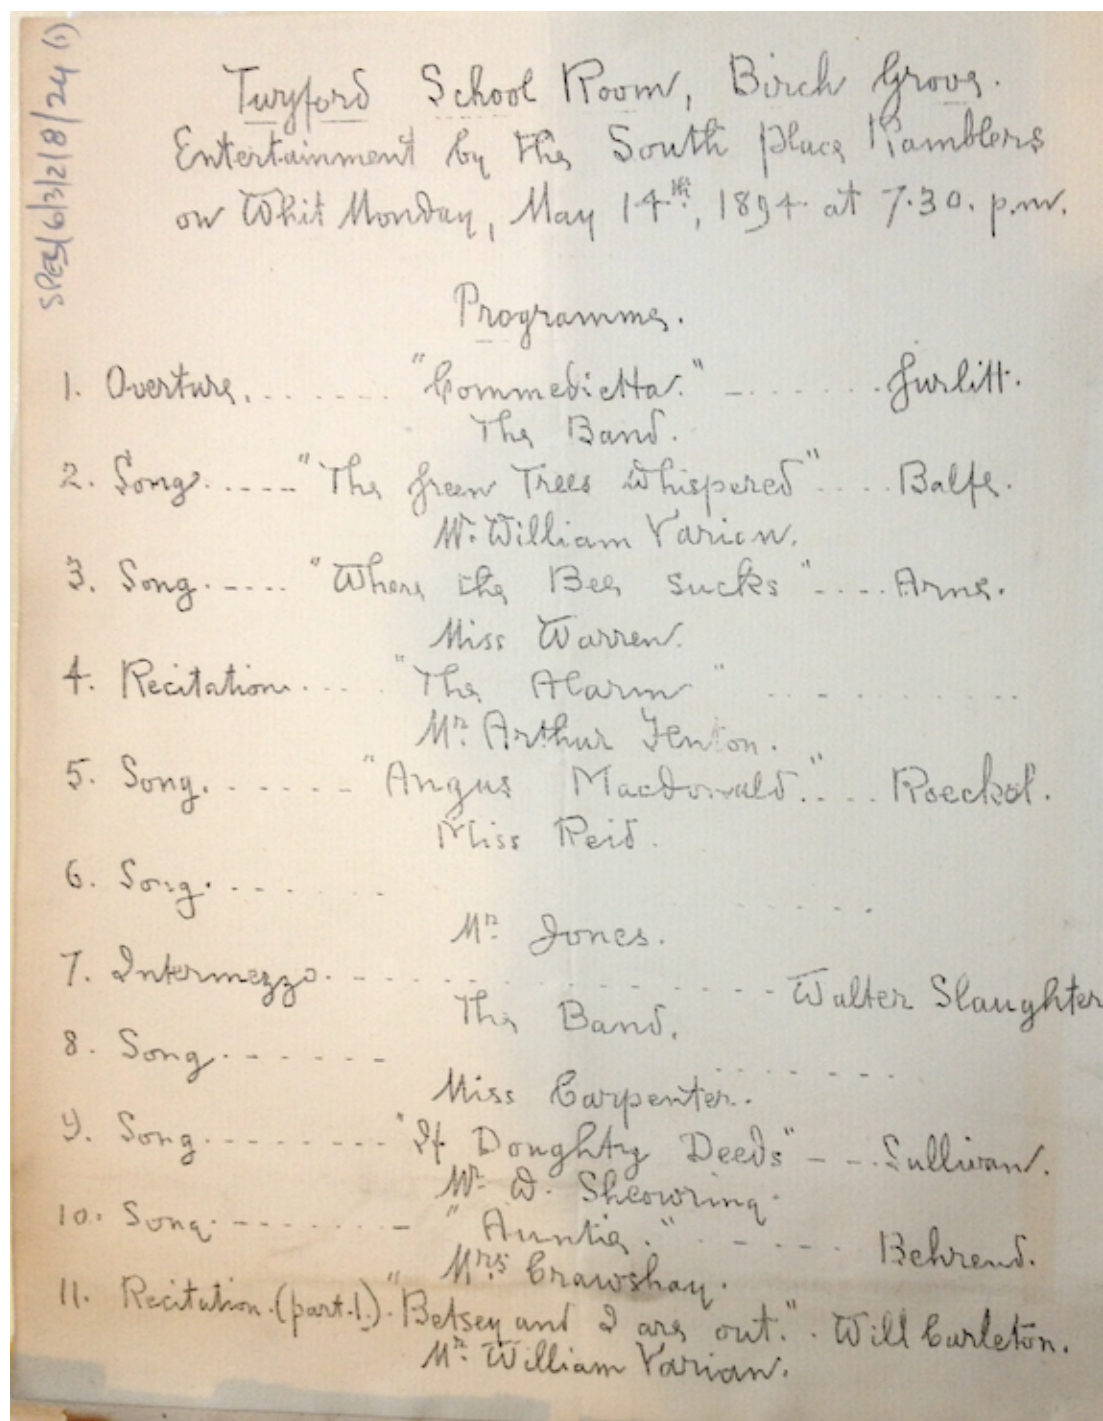 SPES/6/3/2/8/24 (1)
Twyford School Room, Birch Grove.
Entertainment by the South Place Ramblers
on Whit Monday, May 14th, 1894 at 7.30. p.m.
Programme.
1. Overture. . . . . . . . "Commedietta." - . . . . . . Gurlitt.
The Band.
2. Song. . . . . . "The Green Trees Whispered" . . . . Balfe.
Mr. William Varian.
3. Song. . . . . "Where the Bee sucks" . . . . Arne.
Miss Warren.
4. Recitation. . . . . "The Alarm" . . . . . . . . . .
Mr. Arthur Fenton.
5. Song. . . . . . . "Angus Macdonald." . . . . Roeckel.
Miss Reid.
6. Song. . . . . . . . . . . . . .
Mr. Jones.
7. Intermezzo. . . . . . . . . . . . . . . . Walter Slaughter
The Band.
8. Song. . . . . . . . . . . . . . .
Miss Carpenter.
9. Song. . . . . . . . . "If Doughty Deeds" - - . . Sullivan.
Mr. W. Sheowring.
10. Song. . . . . . . . . "Auntie." . . - - . . Behrend.
Mrs. Crawshay.
11. Recitation. (part. 1.) . "Betsey and I are out." . Will Carleton.
Mr. William Varian.